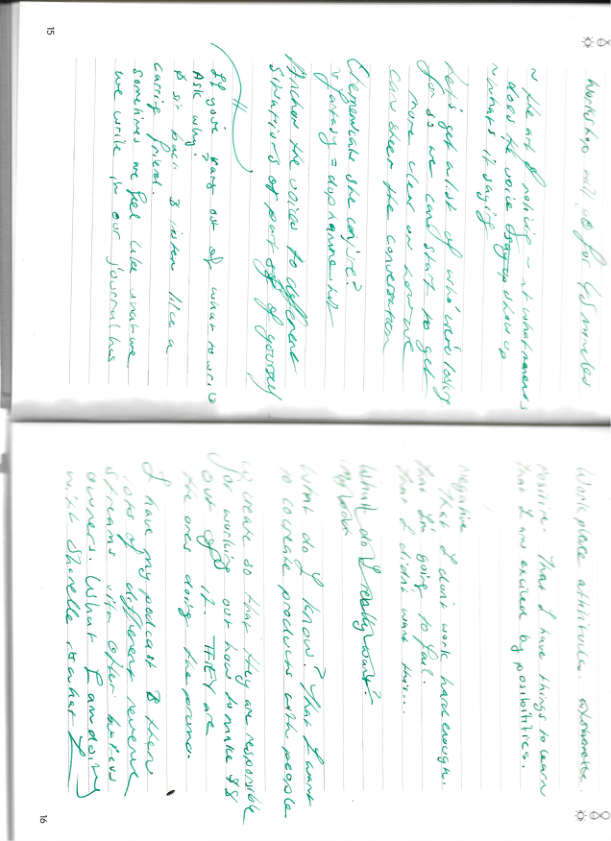 15
workshop will go for 45 minutes
~ the art of noticing - at what moments
does the voice show up
~ whats it saying
Lets get a list of who were talking
for so we can start to get
more clear on how we
can steer the conversation
Chemicals she conjure?
fantasy = dopamine hit
Anchor the voices to different
situations or part of yourself
If you're out of what to write
Ask why?
& sit back & listen like a
caring friend.
Sometimes we feel like what we
we write in our journal has
Workplace attitudes
positive - That I have things to learn
That I am excited by posibilities.
Negative
That I don't work hard enough.
That I'm going to fail.
That I didn't want this...
What do I really want?
What do I know? That I want
to cocreate products with people
create so that they are responsible
for working out how to make $$
out of it. THEY are
the ones doing the promo.
I have my podcast & then
lots of different revenue
streams with other business
owners. What I am doing
with Sharelle is what I
16